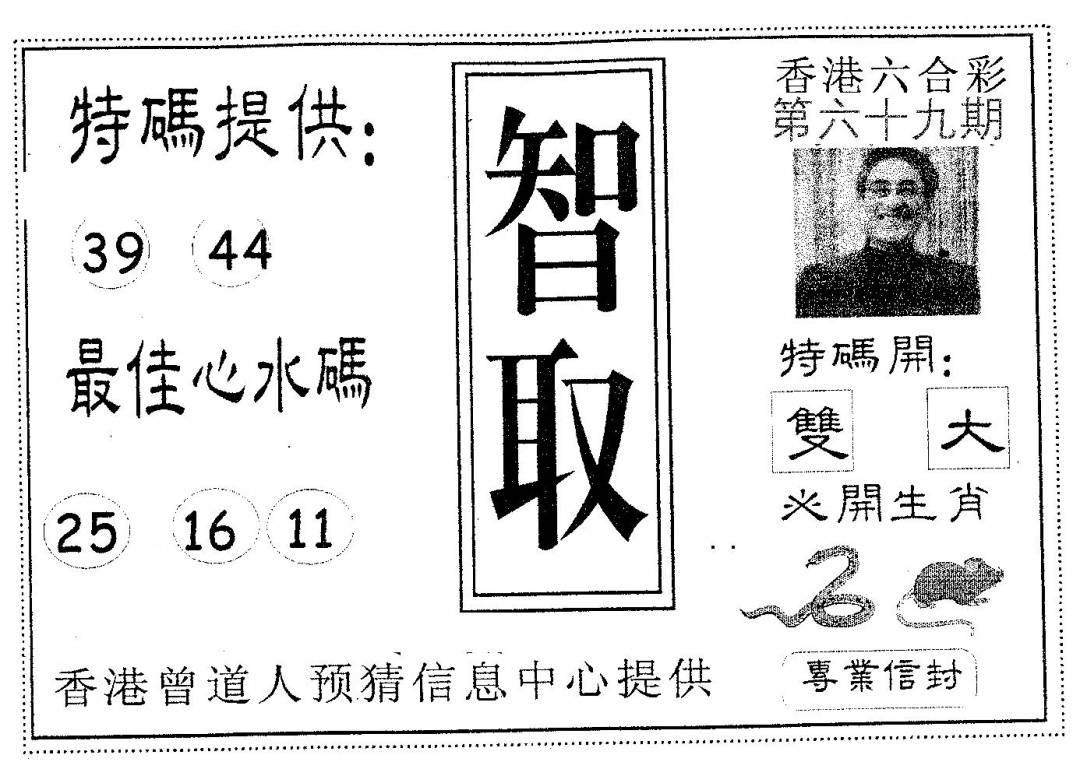 香港六合彩
第六十九期
特碼提供:
39 44
最佳心水碼
25 16 11
智取
特碼開:
雙 大
必開生肖
專業信封
香港曾道人预猜信息中心提供